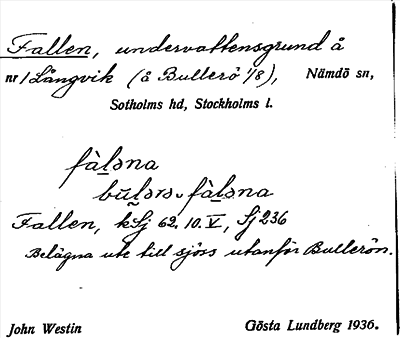 Fallen, undervattensgrund å
nr 1 Långvik (å Bullerö 1/8), Nämdö sn,
Sotholms hd, Stockholms l.
fàləna
bùlərs fàləna
Fallen, kSj 62. 10. V, Sj 236
Belägna ute till sjöss utanför Bullerön.
John Westin Gösta Lundberg 1936.